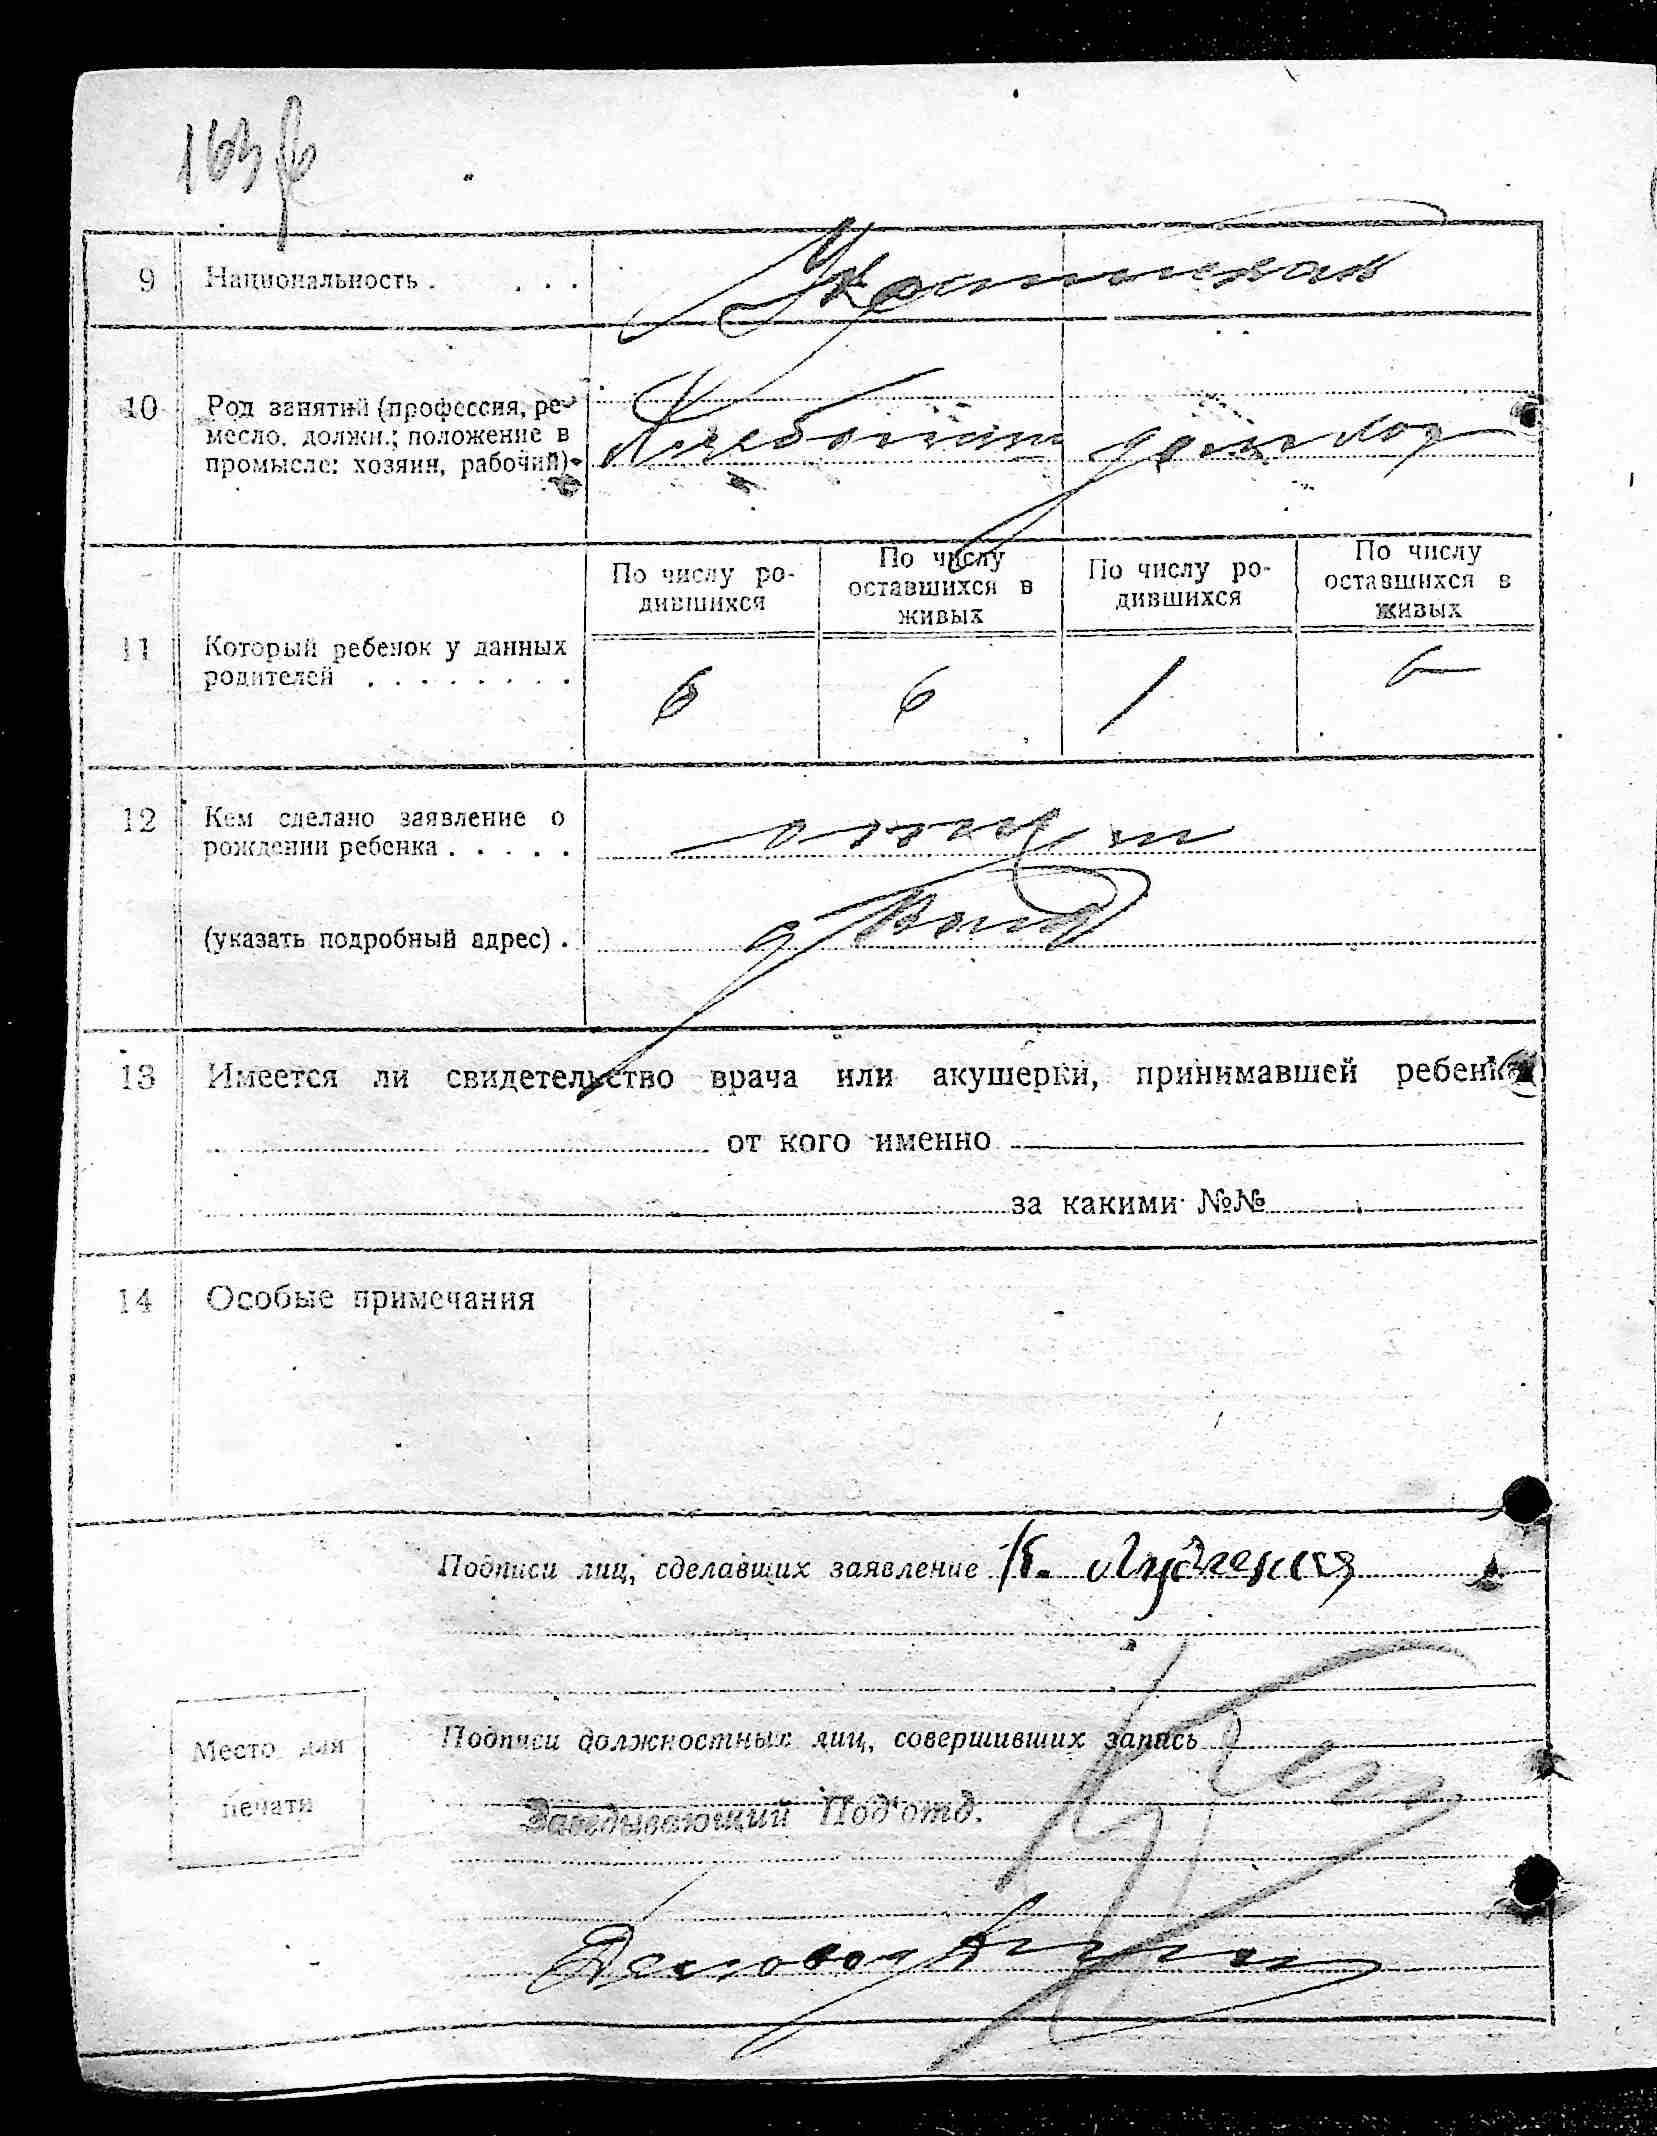 163
9 Национальность . . . . Украинская
10 Род занятий (профессия, ре-
месло, должн.; положение в
промысле: хозяин, рабочий). Хлебопаш домхоз
По числу ро-
дившихся
По числу
оставшихся в
живых
По числу ро-
дившихся
По числу
оставшихся в
живых
11 Который ребенок у данных
родителей . . . . . . . .
6 6 1
12 Кем сделано заявление о
рождении ребенка . . . . . отцем
(указать подробный адрес) .
13 Имеется ли свидетельство врача или акушерки, принимавшей ребенка
от кого именно
за какими №№
14 Особые примечания
Подписи лиц, сделавших заявление К.
Подписи должностных лиц, совершивших запись
Место для
печати
Заведывающий Под'отд.
Деловод